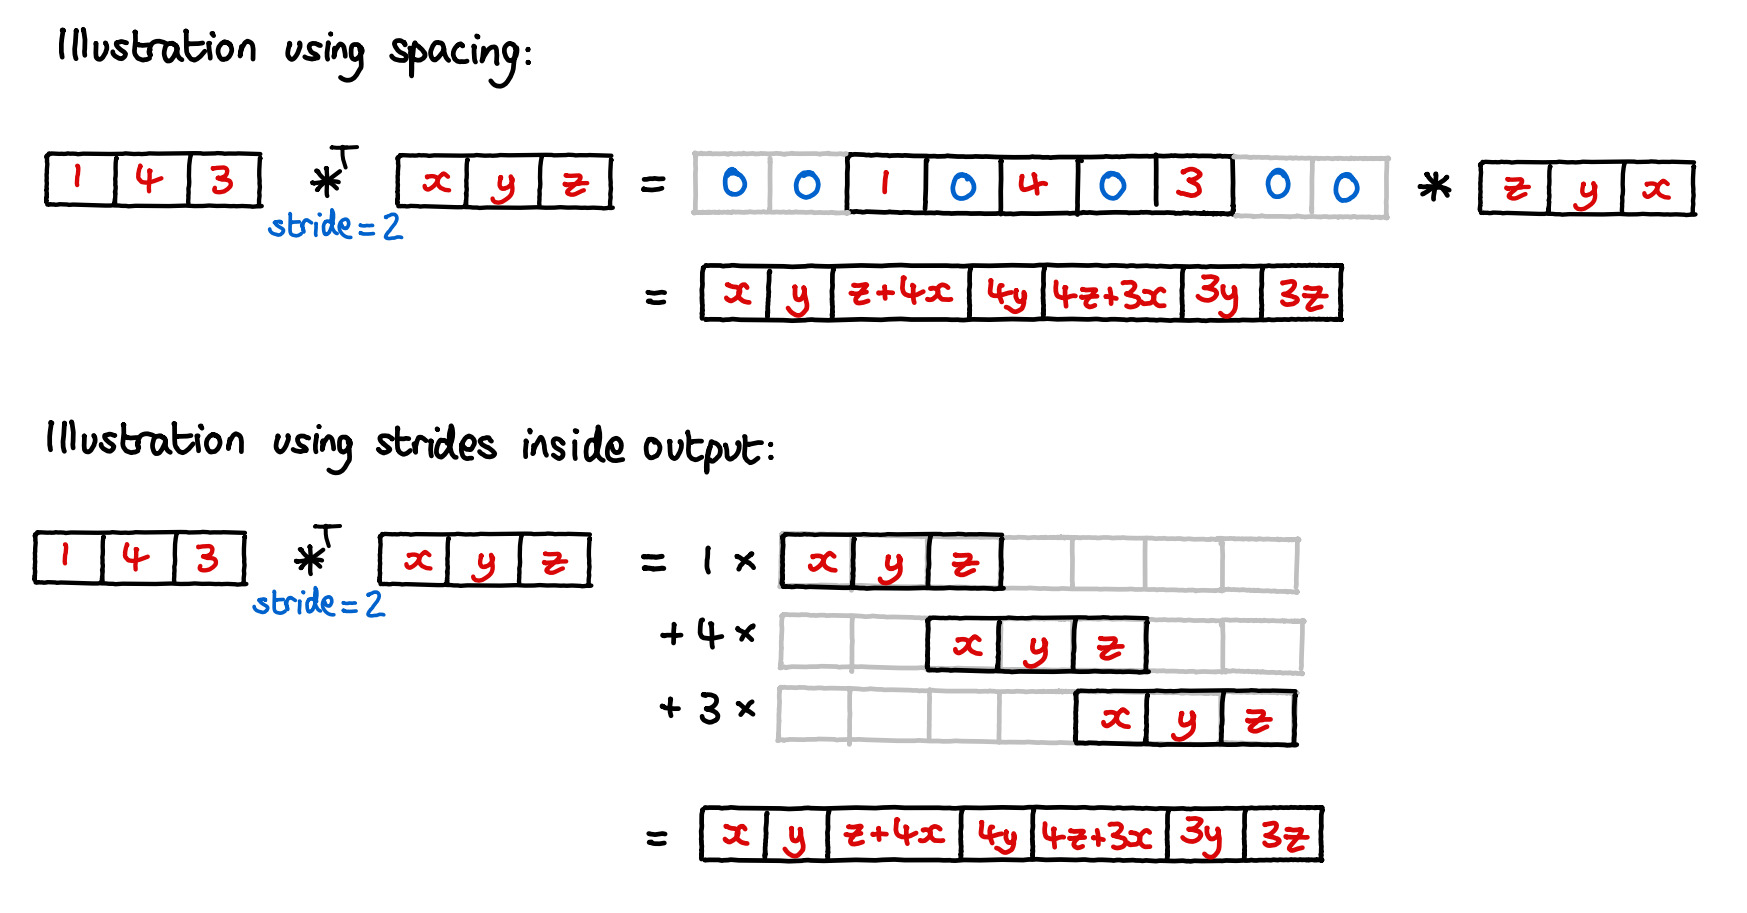 Illustration using spacing:
1 4 3 *T x y z = 0 0 1 0 4 0 3 0 0 * z y x
stride=2
= x y z+4x 4y 4z+3x 3y 3z
Illustration using strides inside output:
1 4 3 *T x y z = 1 × x y z
stride=2
+ 4 × x y z
+ 3 × x y z
= x y z+4x 4y 4z+3x 3y 3z